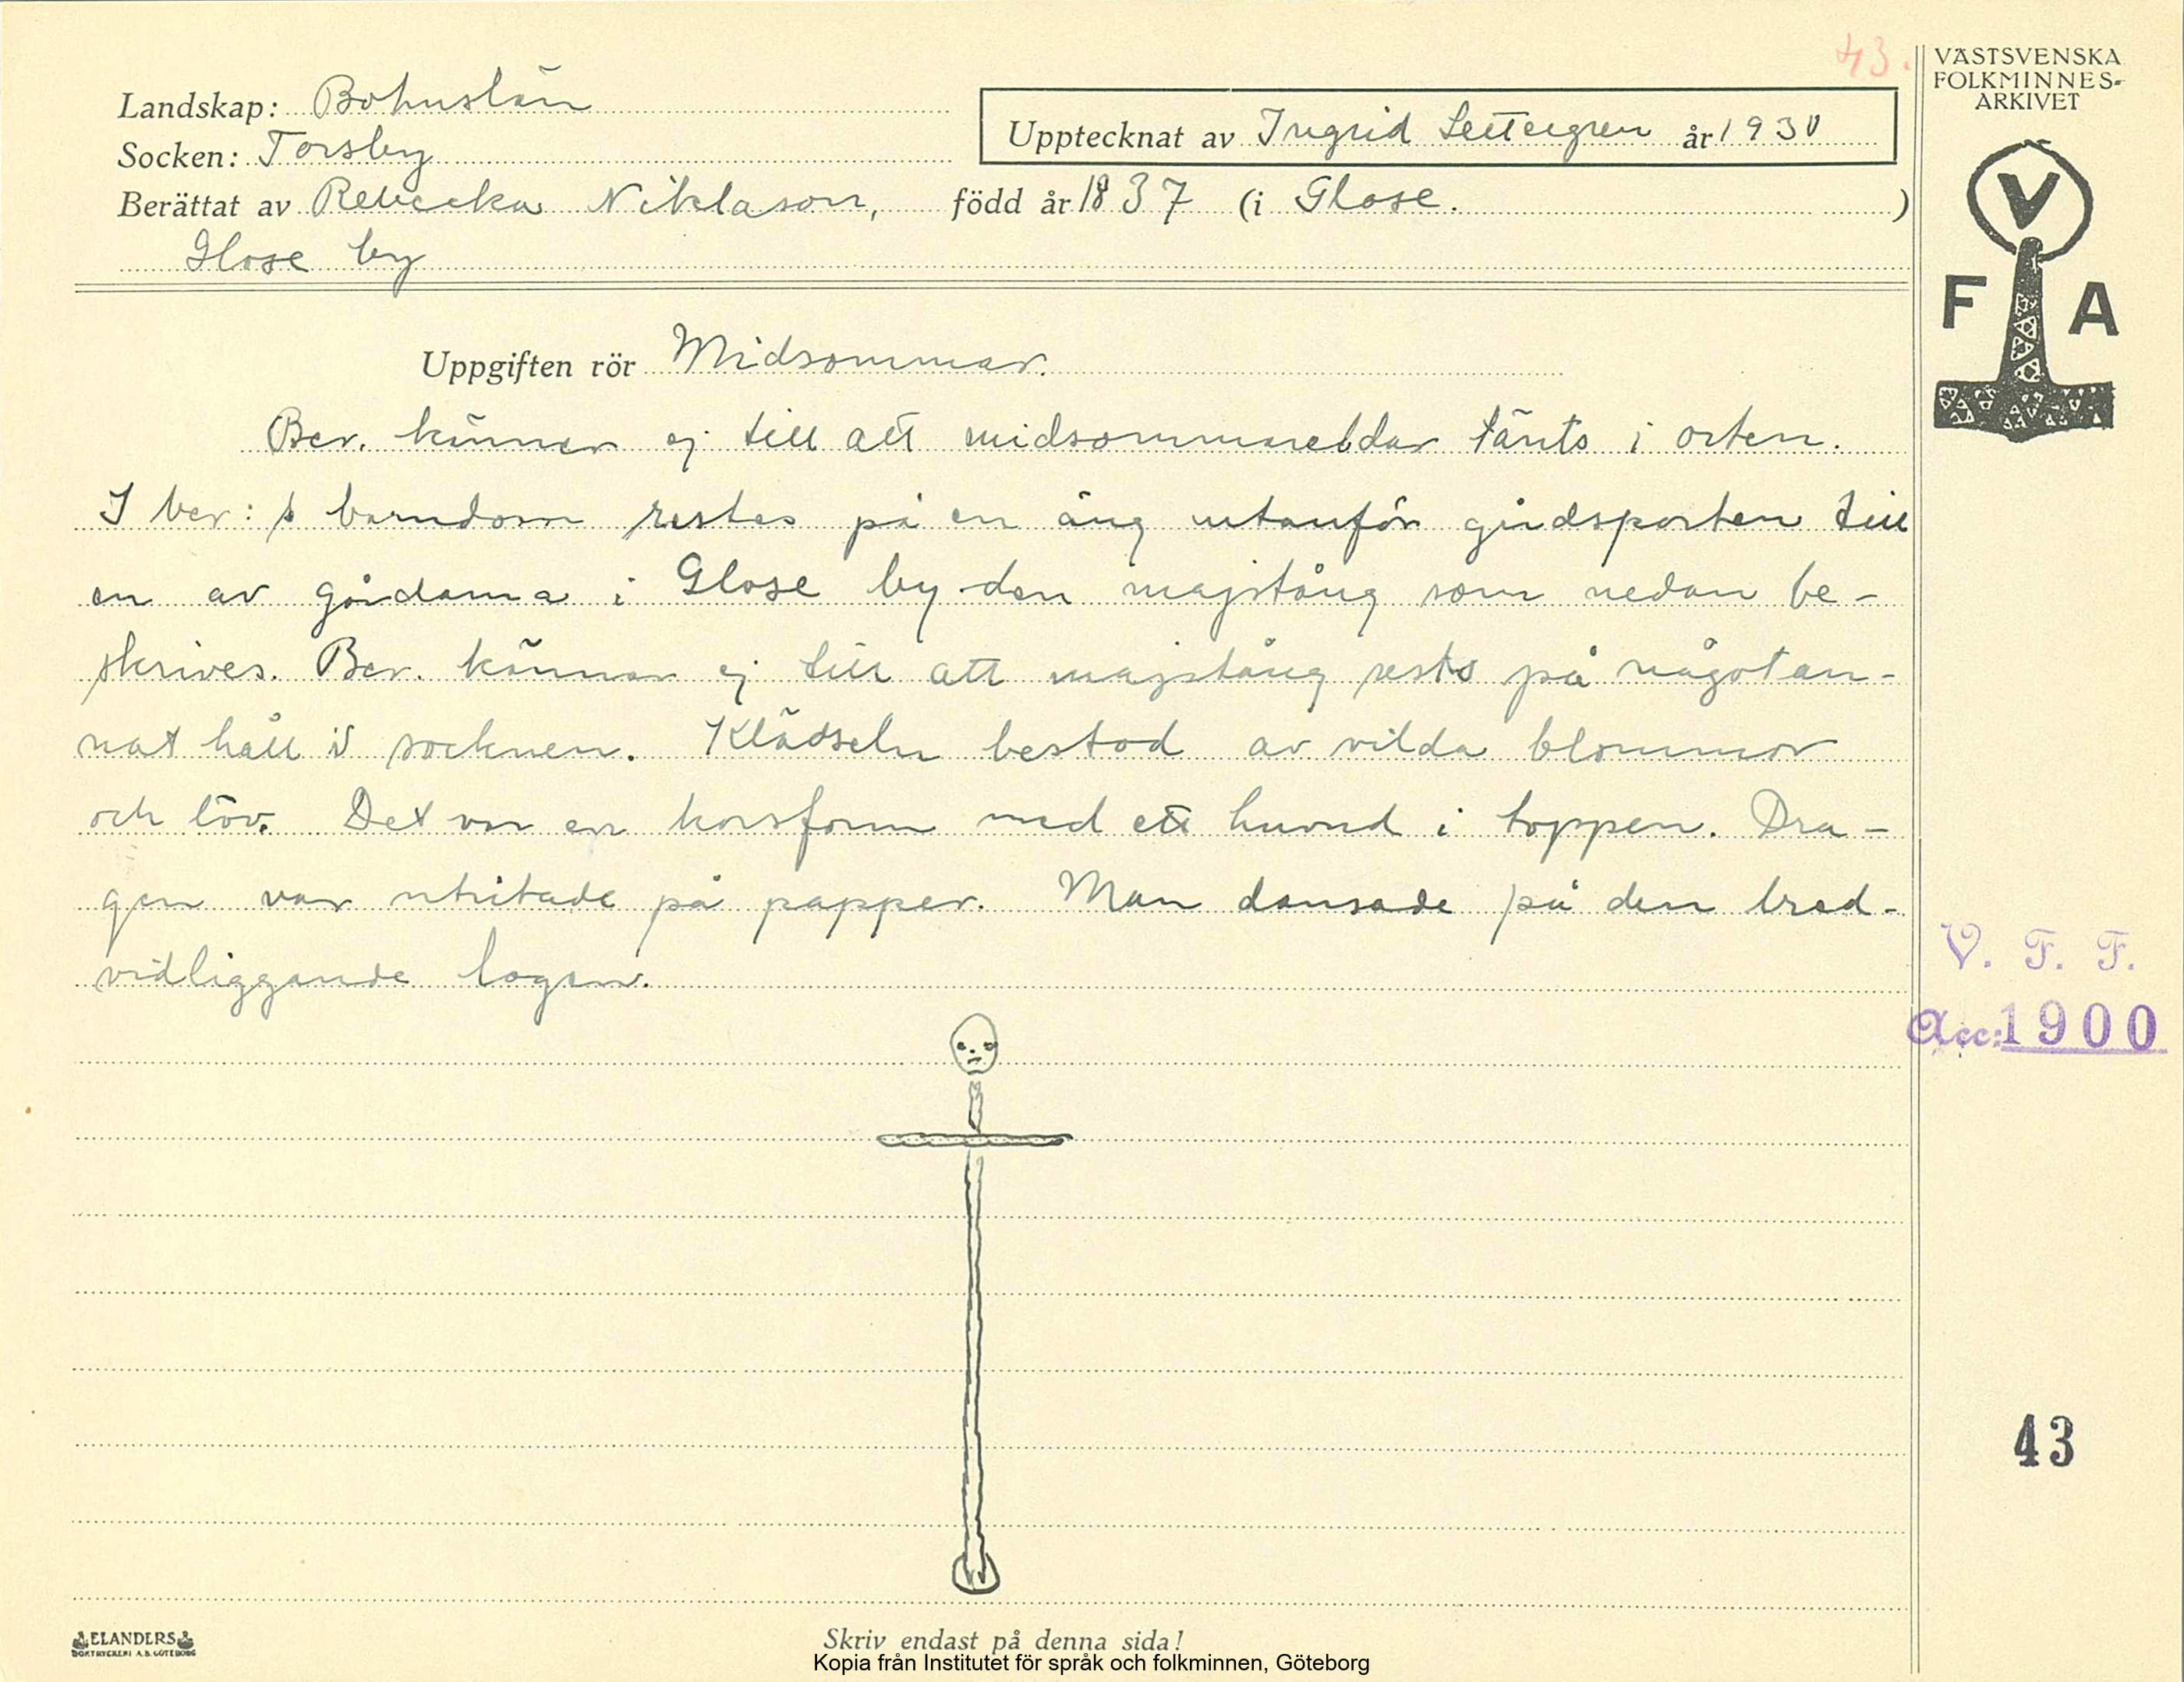 43.
Landskap: Bohuslän
Socken: Torsby
Upptecknat av Ingrid Settergren år 1930
Berättat av Rebecka Niklason, född år 1837 (i Glose. )
Glose by
Uppgiften rör Midsommar.
Ber. känner ej till att midsommareldar tänts i orten.
I ber:s barndom restes på en äng utanför gårdsporten till
en av gårdarna i Glose by den majstång som nedan be-
skrives. Ber. känner ej till att majstång rests på något an-
nat håll i socknen. Klädseln bestod av vilda blommor
och löv. Det var en korsform med ett huvud i toppen. Dra-
gen var utritade på papper. Man dansade på den bred-
vidliggande logen.
VÄSTSVENSKA
FOLKMINNES-
ARKIVET
V
F A
V. F. F.
Acc: 1900
43
ELANDERS
BOKTRYCKERI A.B. GÖTEBORG
Skriv endast på denna sida!
Kopia från Institutet för språk och folkminnen, Göteborg